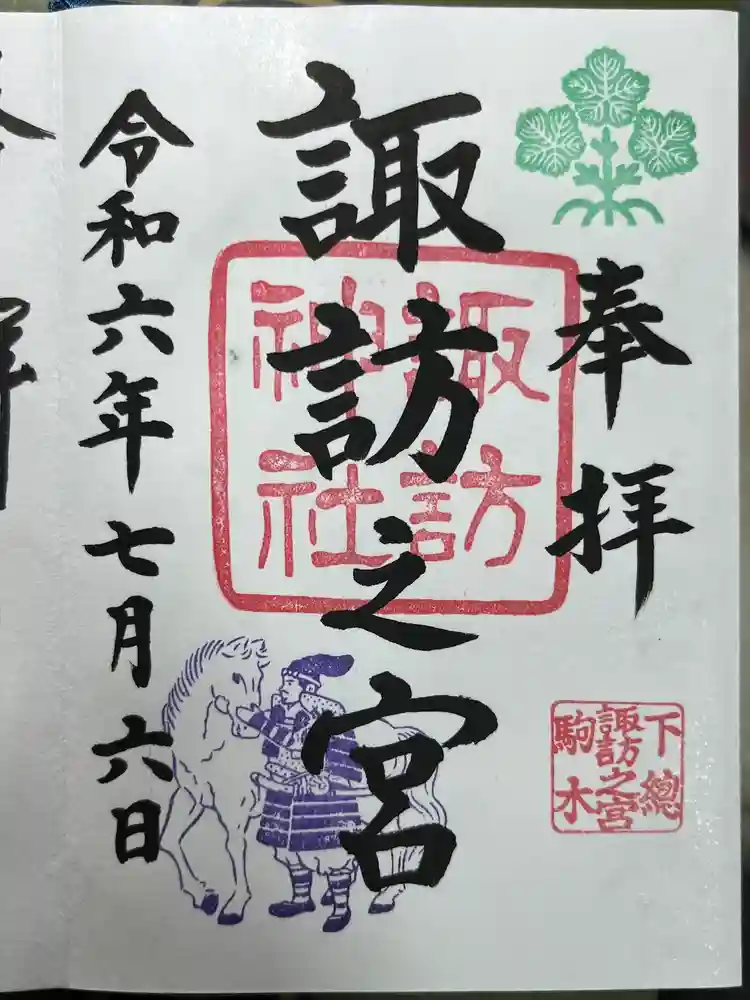 奉拝
下總
諏訪之宮
駒木
諏訪之宮
諏訪
神社
令和六年七月六日